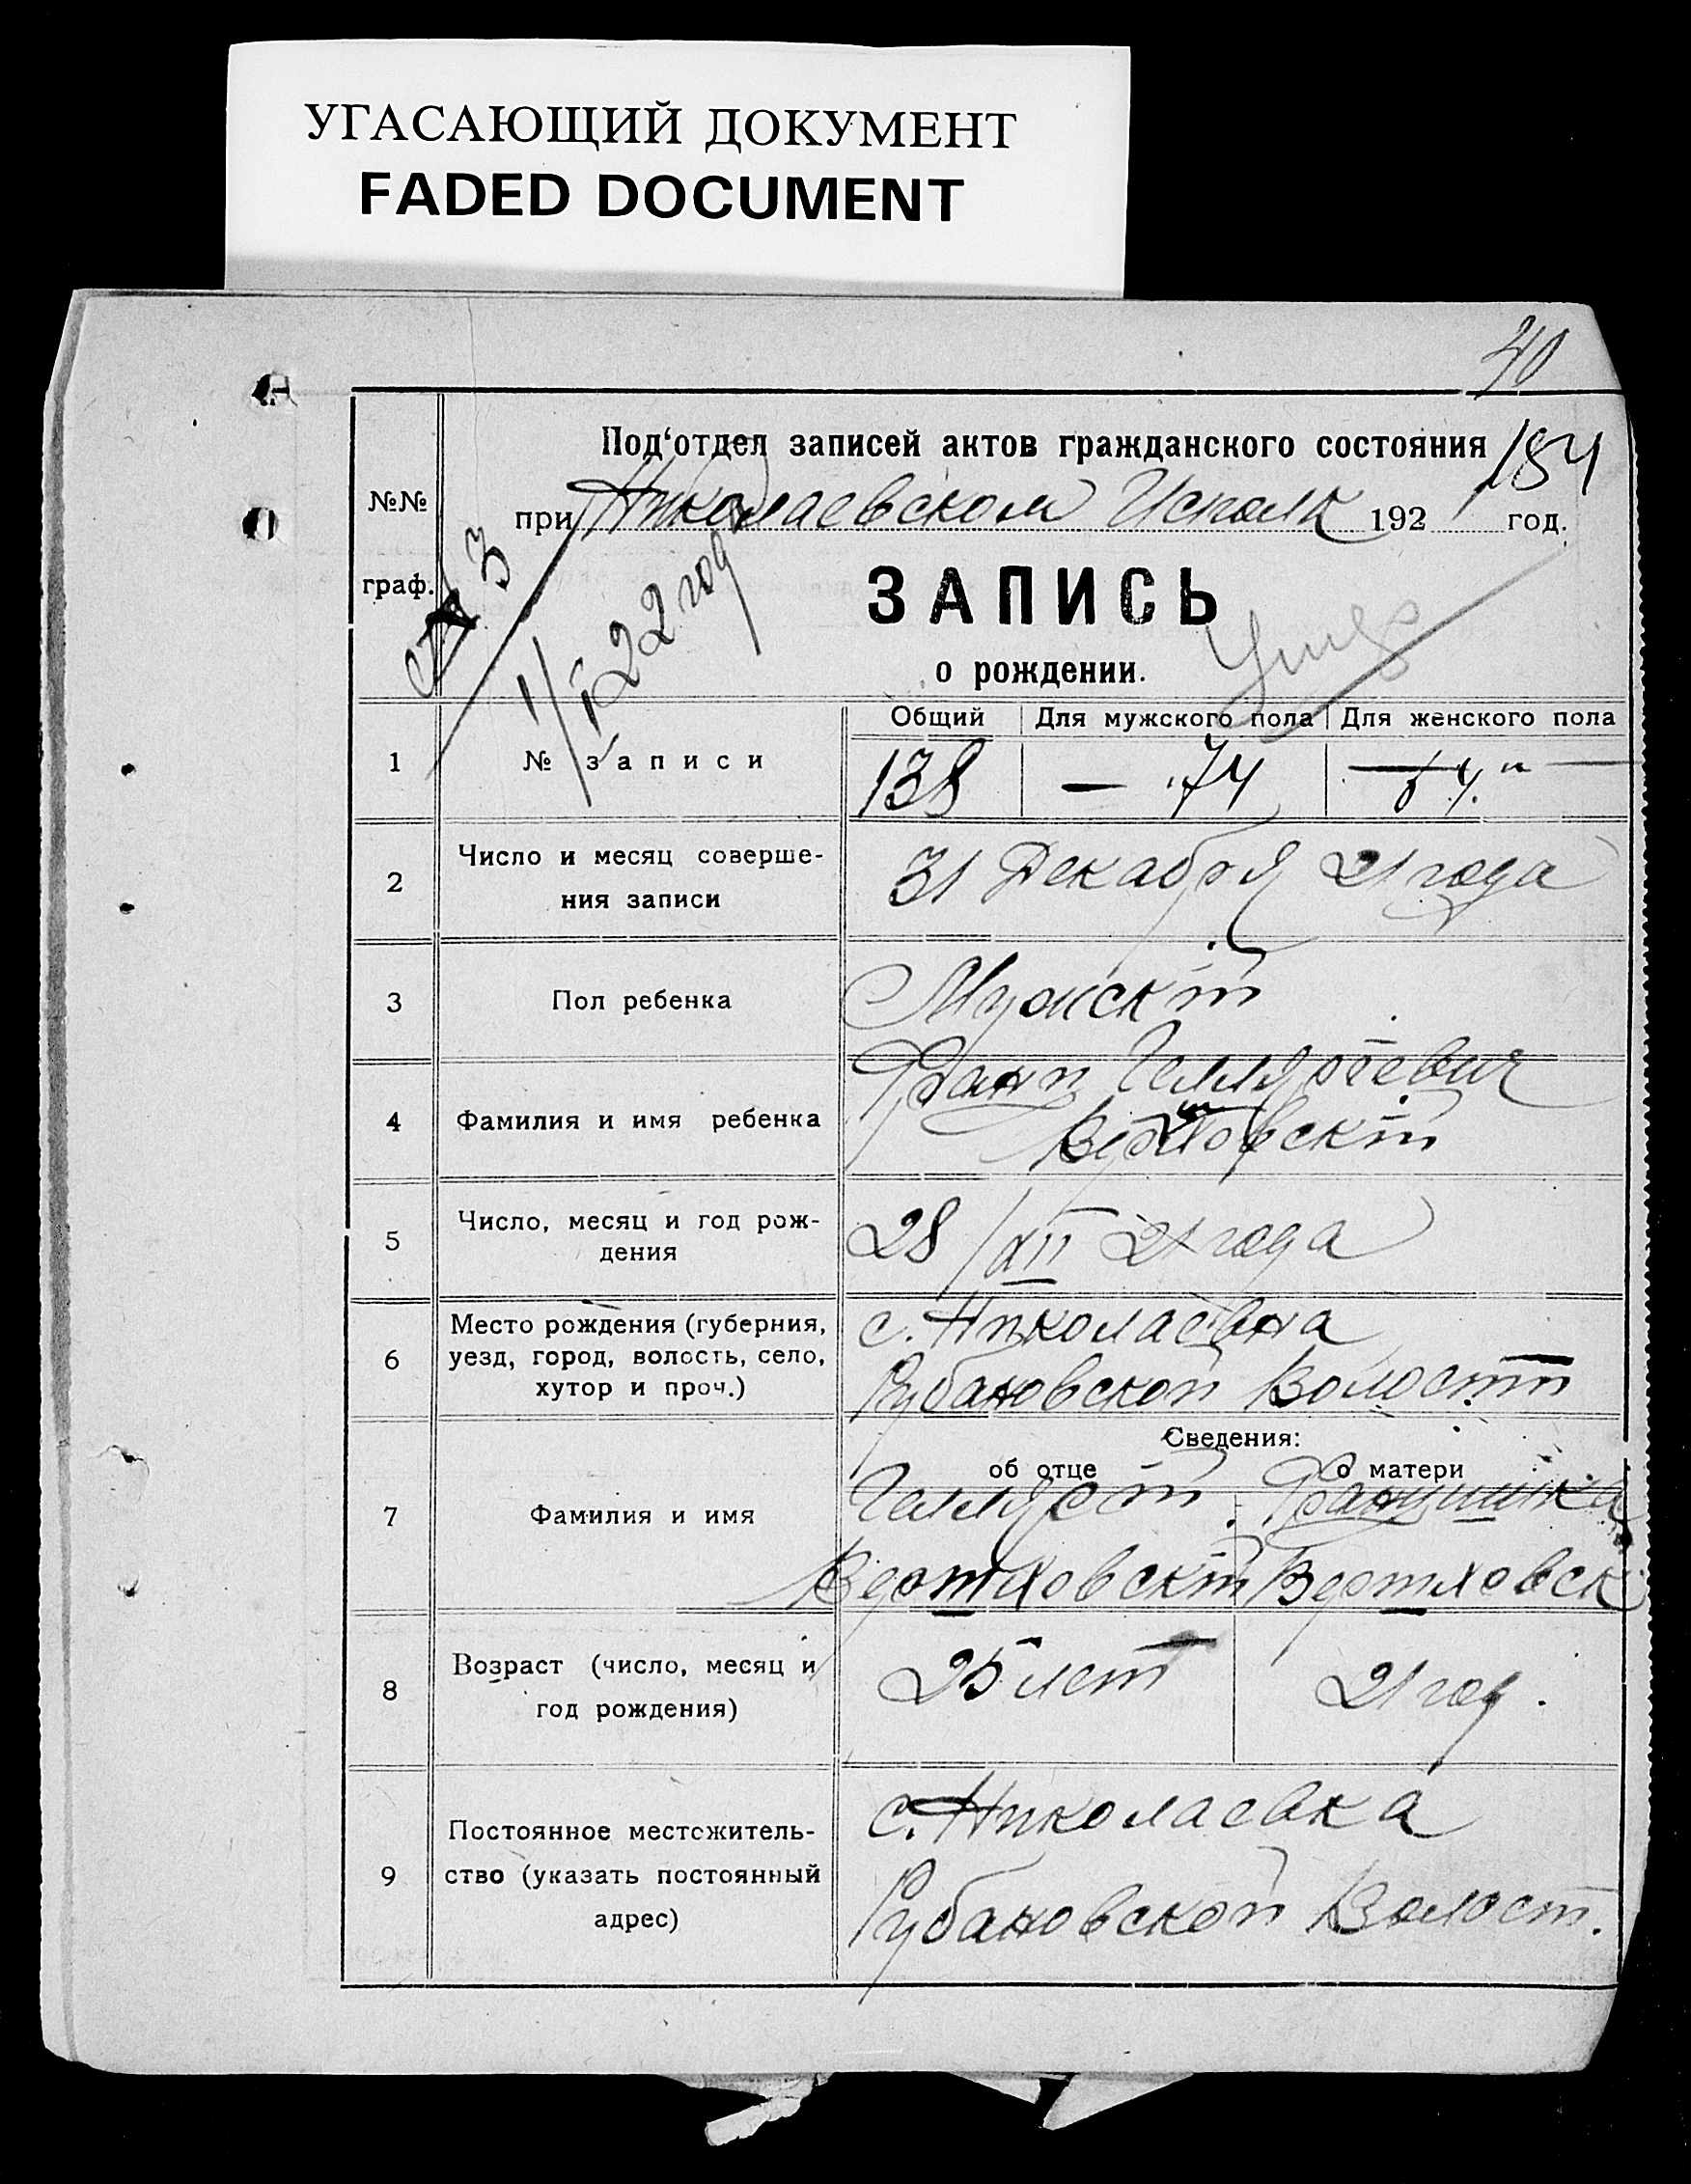 УГАСАЮЩИЙ ДОКУМЕНТ
FADED DOCUMENT
40
Под‘отдел записей актов гражданского состояния
184
№№
граф.
при Николаевском Исполк 1921 год.
3
1/I 22 год
ЗАПИСЬ
о рождении.
Общий Для мужского пола Для женского пола
1 № записи 138 — 74 64 "
2 Число и месяц соверше-
ния записи
31 Декабря 21 года
3 Пол ребенка Мужскій
4 Фамилия и имя ребенка
Вертловскій
5 Число, месяц и год рож-
дения
28/XII 21 года
6 Место рождения (губерния,
уезд, город, волость, село,
хутор и проч.)
с. Николаевка
Рубановской Волости
Сведения:
об отце о матери
7 Фамилия и имя
Вертловскій Вертловск
8 Возраст (число, месяц и
год рождения)
25 лет 21 год.
9 Постоянное местожитель-
ство (указать постоянный
адрес)
с. Николаевка
Рубановской Волост.